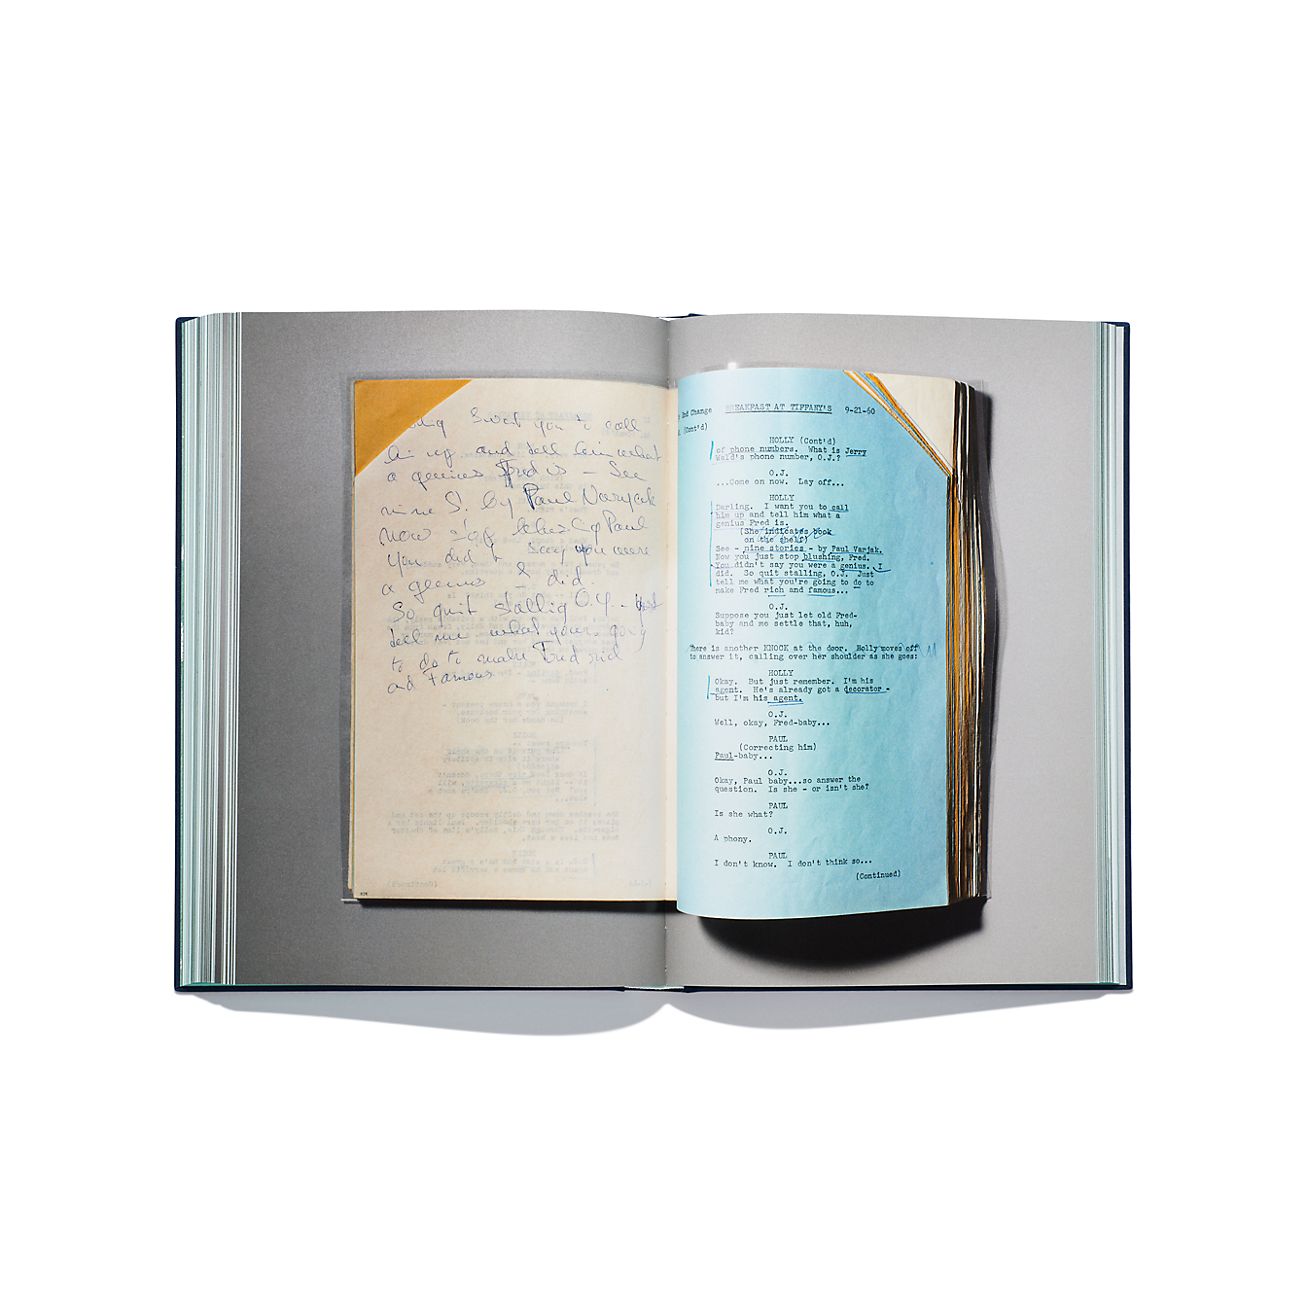 Darling I want you to call
him up and tell him what
a genius Fred is - See
nine S. by Paul Varjak
now stop blushing Paul
You didn't say you were
a genius I did.
So quit stalling O.J. - just
tell me what your going
to do to make Fred rich
and Famous
2nd Change
BREAKFAST AT TIFFANY'S 9-21-60
(Cont'd)
HOLLY (Cont'd)
of phone numbers. What is Jerry
Wald's phone number, O.J.?
O.J.
...Come on now. Lay off...
HOLLY
Darling. I want you to call
him up and tell him what a
genius Fred is.
(She indicates book
on the shelf)
See - nine stories - by Paul Varjak.
Now you just stop blushing, Fred.
You didn't say you were a genius. I
did. So quit stalling, O.J. Just
tell me what you're going to do to
make Fred rich and famous...
O.J.
Suppose you just let old Fred-
baby and me settle that, huh,
kid?
There is another KNOCK at the door. Holly moves off
to answer it, calling over her shoulder as she goes:
HOLLY
Okay. But just remember. I'm his
agent. He's already got a decorator -
but I'm his agent.
O.J.
Well, okay, Fred-baby...
PAUL
(Correcting him)
Paul-baby...
O.J.
Okay, Paul baby...so answer the
question. Is she - or isn't she?
PAUL
Is she what?
O.J.
A phony.
PAUL
I don't know. I don't think so...
(Continued)